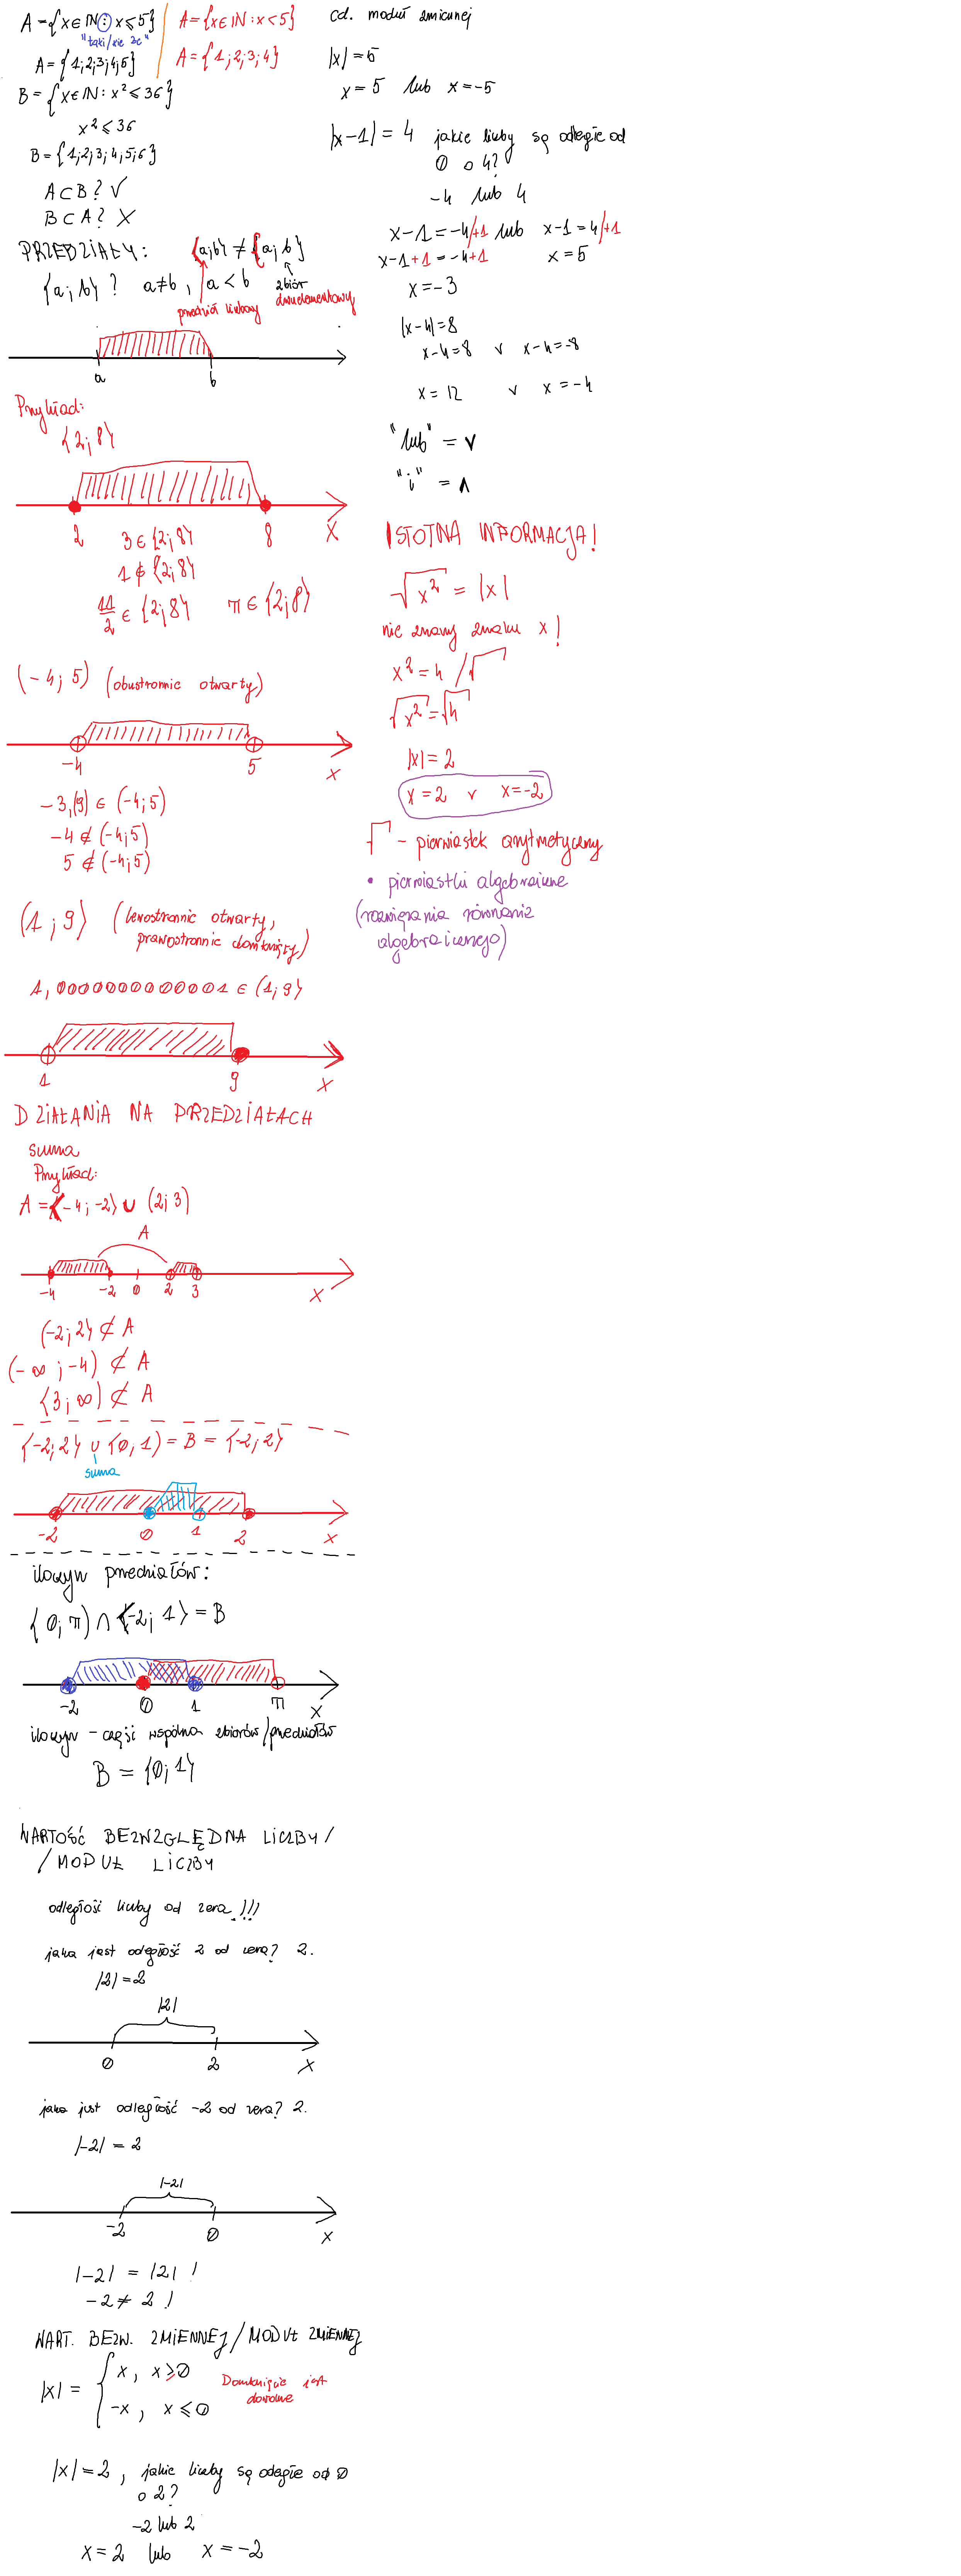 A = {x ∈ ℕ : x ⩽ 5}
"taki/że że"
A = {1; 2; 3; 4; 5}
A = {x ∈ ℕ : x < 5}
A = {1; 2; 3; 4}
B = {x ∈ ℕ : x² ⩽ 36}
x² ⩽ 36
B = {1; 2; 3; 4; 5; 6}
A ⊂ B ? ✓
B ⊂ A ? ✗
PRZEDZIAŁY:
⟨a; b⟩ ≠ {a; b}
⟨a; b⟩ ? a ≠ b, a < b
zbiór dwuelementowy
przedział liczbowy
a b
Przykład:
⟨2; 8⟩
2 8 x
3 ∈ ⟨2; 8⟩
1 ∉ ⟨2; 8⟩
11/2 ∈ ⟨2; 8⟩ π ∈ ⟨2; 8⟩
(-4; 5) (obustronnie otwarty)
-4 5 x
-3,(9) ∈ (-4; 5)
-4 ∉ (-4; 5)
5 ∉ (-4; 5)
(1; 9⟩ (lewostronnie otwarty,
prawostronnie domknięty)
1,00000000000001 ∈ (1; 9⟩
1 9 x
DZIAŁANIA NA PRZEDZIAŁACH
suma
Przykład:
A = ⟨-4; -2⟩ ∪ (2; 3)
A
-4 -2 0 2 3 x
(-2; 2⟩ ⊄ A
(-∞; -4) ⊄ A
⟨3; ∞) ⊄ A
⟨-2; 2⟩ ∪ ⟨0, 1) = B = ⟨-2; 2⟩
suma
-2 0 1 2 x
iloczyn przedziałów:
⟨0; π) ∩ ⟨-2; 1⟩ = B
-2 0 1 π x
iloczyn - część wspólna zbiorów/przedziałów
B = ⟨0; 1⟩
WARTOŚĆ BEZWZGLĘDNA LICZBY/
/MODUŁ LICZBY
odległość liczby od zera!!!
jaka jest odległość 2 od zera? 2.
|2| = 2
|2|
0 2 x
jaka jest odległość -2 od zera? 2.
|-2| = 2
|-2|
-2 0 x
|-2| = |2| !
-2 ≠ 2 !
WART. BEZW. ZMIENNEJ/MODUŁ ZMIENNEJ
|x| = { x, x ⩾ 0
-x, x ⩽ 0
Domknięcie jest
dowolne
|x| = 2, jakie liczby są odległe od 0
o 2?
-2 lub 2
x = 2 lub x = -2
cd. moduł zmiennej
|x| = 5
x = 5 lub x = -5
|x-1| = 4 jakie liczby są odległe od
0 o 4?
-4 lub 4
x-1 = -4 /+1 lub x-1 = 4 /+1
x-1+1 = -4+1 x = 5
x = -3
|x-4| = 8
x-4 = 8 ∨ x-4 = -8
x = 12 ∨ x = -4
"lub" = ∨
"i" = ∧
ISTOTNA INFORMACJA!
√x² = |x|
nie znamy znaku x!
x² = 4 /√
√x² = √4
|x| = 2
x = 2 ∨ x = -2
√ - pierwiastek arytmetyczny
• pierwiastki algebraiczne
(rozwiązania równania
algebraicznego)